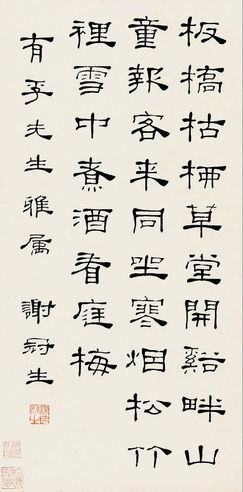 板橋枯柳草堂開谿畔山
童報客來同坐寒烟松竹
裡雪中煮酒看庭梅
有孚先生雅属 謝冠生